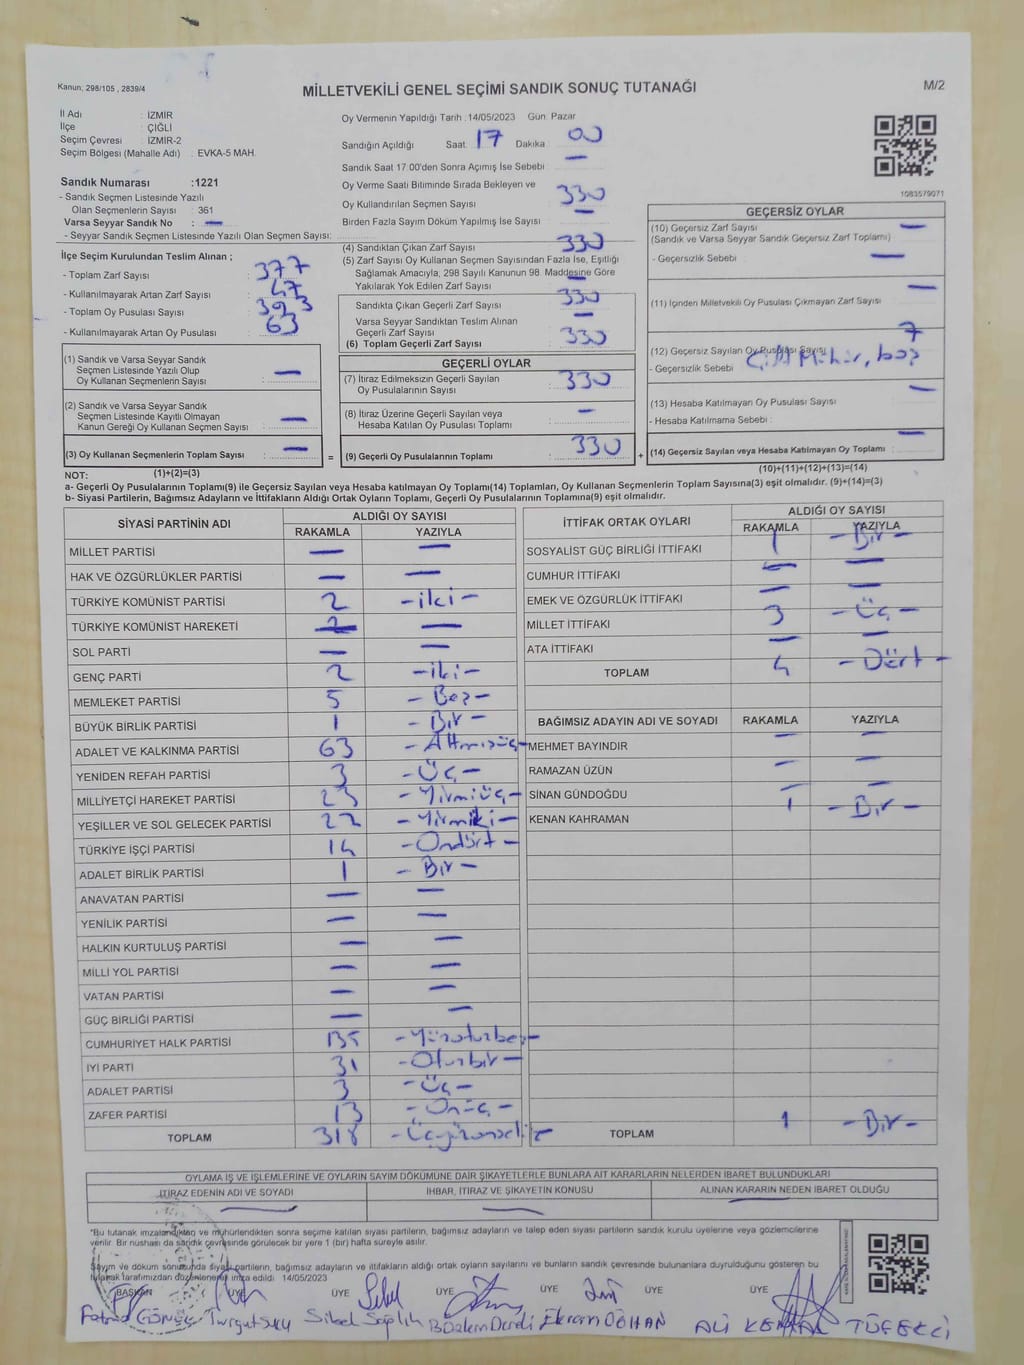 Kanun, 298/105 , 2839/4
MİLLETVEKİLİ GENEL SEÇİMİ SANDIK SONUÇ TUTANAĞI
M/2
İl Adı : İZMİR
İlçe : ÇİĞLİ
Seçim Çevresi : İZMİR-2
Seçim Bölgesi (Mahalle Adı) : EVKA-5 MAH.
Oy Vermenin Yapıldığı Tarih :14/05/2023 Gün: Pazar
Sandığın Açıldığı Saat: 17 Dakika: 00
Sandık Saat 17.00'den Sonra Açımış İse Sebebi : —
Oy Verme Saati Bitiminde Sırada Bekleyen ve
Oy Kullandırılan Seçmen Sayısı : 330
Birden Fazla Sayım Döküm Yapılmış İse Sayısı : —
1083579071
Sandık Numarası :1221
- Sandık Seçmen Listesinde Yazılı
Olan Seçmenlerin Sayısı : 361
Varsa Seyyar Sandık No : —
- Seyyar Sandık Seçmen Listesinde Yazılı Olan Seçmen Sayısı:
İlçe Seçim Kurulundan Teslim Alınan ;
- Toplam Zarf Sayısı : 377
- Kullanılmayarak Artan Zarf Sayısı : 47
- Toplam Oy Pusulası Sayısı : 393
- Kullanılmayarak Artan Oy Pusulası : 63
(1) Sandık ve Varsa Seyyar Sandık
Seçmen Listesinde Yazılı Olup
Oy Kullanan Seçmenlerin Sayısı : —
(2) Sandık ve Varsa Seyyar Sandık
Seçmen Listesinde Kayıtlı Olmayan
Kanun Gereği Oy Kullanan Seçmen Sayısı : —
(3) Oy Kullanan Seçmenlerin Toplam Sayısı : —
(4) Sandıktan Çıkan Zarf Sayısı : 330
(5) Zarf Sayısı Oy Kullanan Seçmen Sayısından Fazla İse, Eşitliği
Sağlamak Amacıyla, 298 Sayılı Kanunun 98. Maddesine Göre
Yakılarak Yok Edilen Zarf Sayısı : —
Sandıkta Çıkan Geçerli Zarf Sayısı : 330
Varsa Seyyar Sandıktan Teslim Alınan
Geçerli Zarf Sayısı : —
(6) Toplam Geçerli Zarf Sayısı : 330
GEÇERLİ OYLAR
(7) İtiraz Edilmeksizin Geçerli Sayılan
Oy Pusulalarının Sayısı : 330
(8) İtiraz Üzerine Geçerli Sayılan veya
Hesaba Katılan Oy Pusulası Toplamı : —
= (9) Geçerli Oy Pusulalarının Toplamı : 330 +
GEÇERSİZ OYLAR
(10) Geçersiz Zarf Sayısı : —
(Sandık ve Varsa Seyyar Sandık Geçersiz Zarf Toplamı)
- Geçersizlik Sebebi : —
(11) İçinden Milletvekili Oy Pusulası Çıkmayan Zarf Sayısı : —
(12) Geçersiz Sayılan Oy Pusulası Sayısı : 7
- Geçersizlik Sebebi : Çift Mühür, boş
(13) Hesaba Katılmayan Oy Pusulası Sayısı : —
- Hesaba Katılmama Sebebi :
(14) Geçersiz Sayılan veya Hesaba Katılmayan Oy Toplamı : —
NOT: (1)+(2)=(3) (10)+(11)+(12)+(13)=(14)
a- Geçerli Oy Pusulalarının Toplamı(9) ile Geçersiz Sayılan veya Hesaba katılmayan Oy Toplamı(14) Toplamları, Oy Kullanan Seçmenlerin Toplam Sayısına(3) eşit olmalıdır. (9)+(14)=(3)
b- Siyasi Partilerin, Bağımsız Adayların ve İttifakların Aldığı Ortak Oyların Toplamı, Geçerli Oy Pusulalarının Toplamına(9) eşit olmalıdır.
SİYASİ PARTİNİN ADI ALDIĞI OY SAYISI
RAKAMLA YAZIYLA
MİLLET PARTİSİ — —
HAK VE ÖZGÜRLÜKLER PARTİSİ — —
TÜRKİYE KOMÜNİST PARTİSİ 2 -iki-
TÜRKİYE KOMÜNİST HAREKETİ — —
SOL PARTİ — —
GENÇ PARTİ 2 -iki-
MEMLEKET PARTİSİ 5 -Beş-
BÜYÜK BİRLİK PARTİSİ 1 -Bir-
ADALET VE KALKINMA PARTİSİ 63 -Altmışüç-
YENİDEN REFAH PARTİSİ 3 -Üç-
MİLLİYETÇİ HAREKET PARTİSİ 23 -Yirmiüç-
YEŞİLLER VE SOL GELECEK PARTİSİ 22 -Yirmiki-
TÜRKİYE İŞÇİ PARTİSİ 14 -Ondört-
ADALET BİRLİK PARTİSİ 1 -Bir-
ANAVATAN PARTİSİ — —
YENİLİK PARTİSİ — —
HALKIN KURTULUŞ PARTİSİ — —
MİLLİ YOL PARTİSİ — —
VATAN PARTİSİ — —
GÜÇ BİRLİĞİ PARTİSİ — —
CUMHURİYET HALK PARTİSİ 135 -Yüzotuzbeş-
İYİ PARTİ 31 -Oturbir-
ADALET PARTİSİ 3 -Üç-
ZAFER PARTİSİ 13 -Onüç-
TOPLAM 318
İTTİFAK ORTAK OYLARI ALDIĞI OY SAYISI
RAKAMLA YAZIYLA
SOSYALİST GÜÇ BİRLİĞİ İTTİFAKI 1 -Bir-
CUMHUR İTTİFAKI — —
EMEK VE ÖZGÜRLÜK İTTİFAKI — —
MİLLET İTTİFAKI 3 -Üç-
ATA İTTİFAKI — —
TOPLAM 4 -Dört-
BAĞIMSIZ ADAYIN ADI VE SOYADI RAKAMLA YAZIYLA
MEHMET BAYINDIR — —
RAMAZAN ÜZÜN — —
SİNAN GÜNDOĞDU — —
KENAN KAHRAMAN 1 -Bir-
TOPLAM 1 -Bir-
OYLAMA İŞ VE İŞLEMLERİNE VE OYLARIN SAYIM DÖKÜMÜNE DAİR ŞİKAYETLERLE BUNLARA AİT KARARLARIN NELERDEN İBARET BULUNDUKLARI
İTİRAZ EDENİN ADI VE SOYADI İHBAR, İTİRAZ VE ŞİKAYETİN KONUSU ALINAN KARARIN NEDEN İBARET OLDUĞU
— — —
"Bu tutanak imzalandıktan ve mühürlendikten sonra seçime katılan siyasi partilerin, bağımsız adayların ve talep eden siyasi partilerin sandık kurulu üyelerine veya gözlemcilerine
verilir. Bir nushası da sandık çevresinde görülecek bir yere 1 (bir) hafta süreyle asılır.
Sayım ve döküm sonucunda siyasi partilerin, bağımsız adayların ve ittifakların aldığı ortak oyların sayılarını ve bunların sandık çevresinde bulunanlara duyrulduğunu gösteren bu
tutanak tarafımızdan düzenlenerek imza edildi. 14/05/2023
BAŞKAN ÜYE ÜYE ÜYE ÜYE ÜYE ÜYE
Sibel Sağlık Ekrem DOĞAN ALİ KEMAL TÜFEKCİ